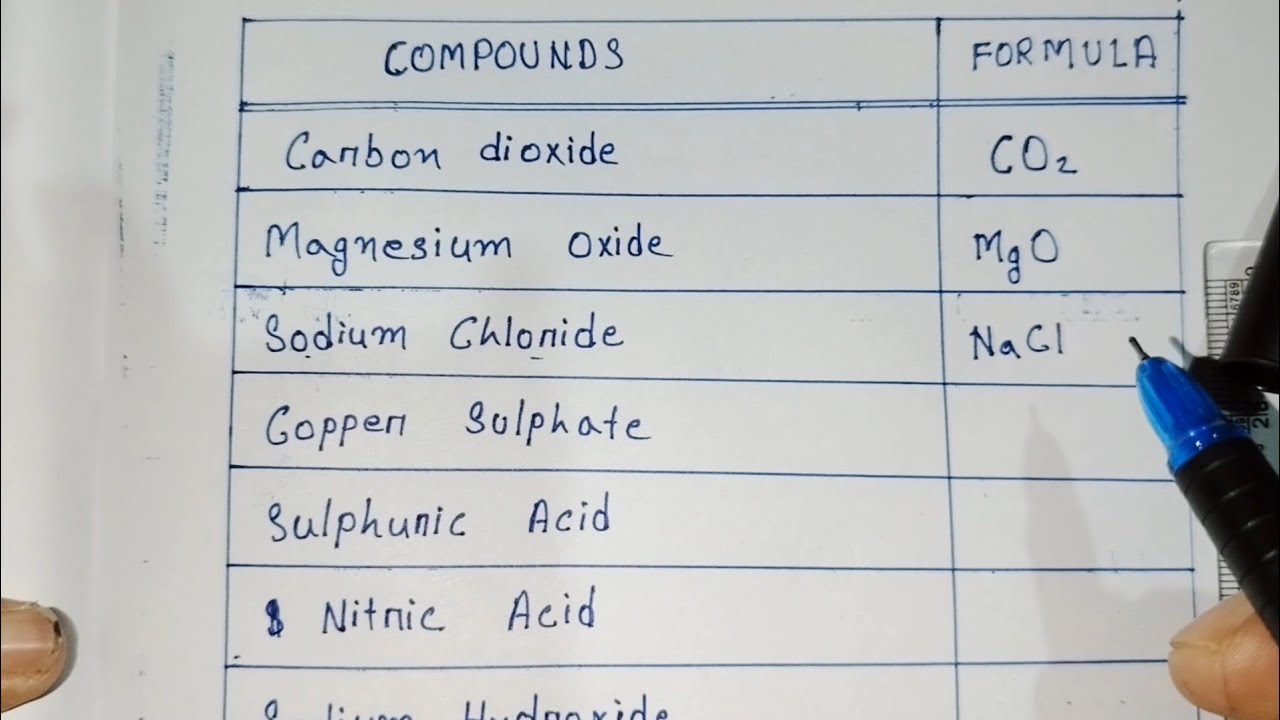 COMPOUNDS FORMULA
Carbon dioxide CO₂
Magnesium Oxide MgO
Sodium Chloride NaCl
Copper Sulphate
Sulphuric Acid
Nitric Acid
Sodium Hydroxide